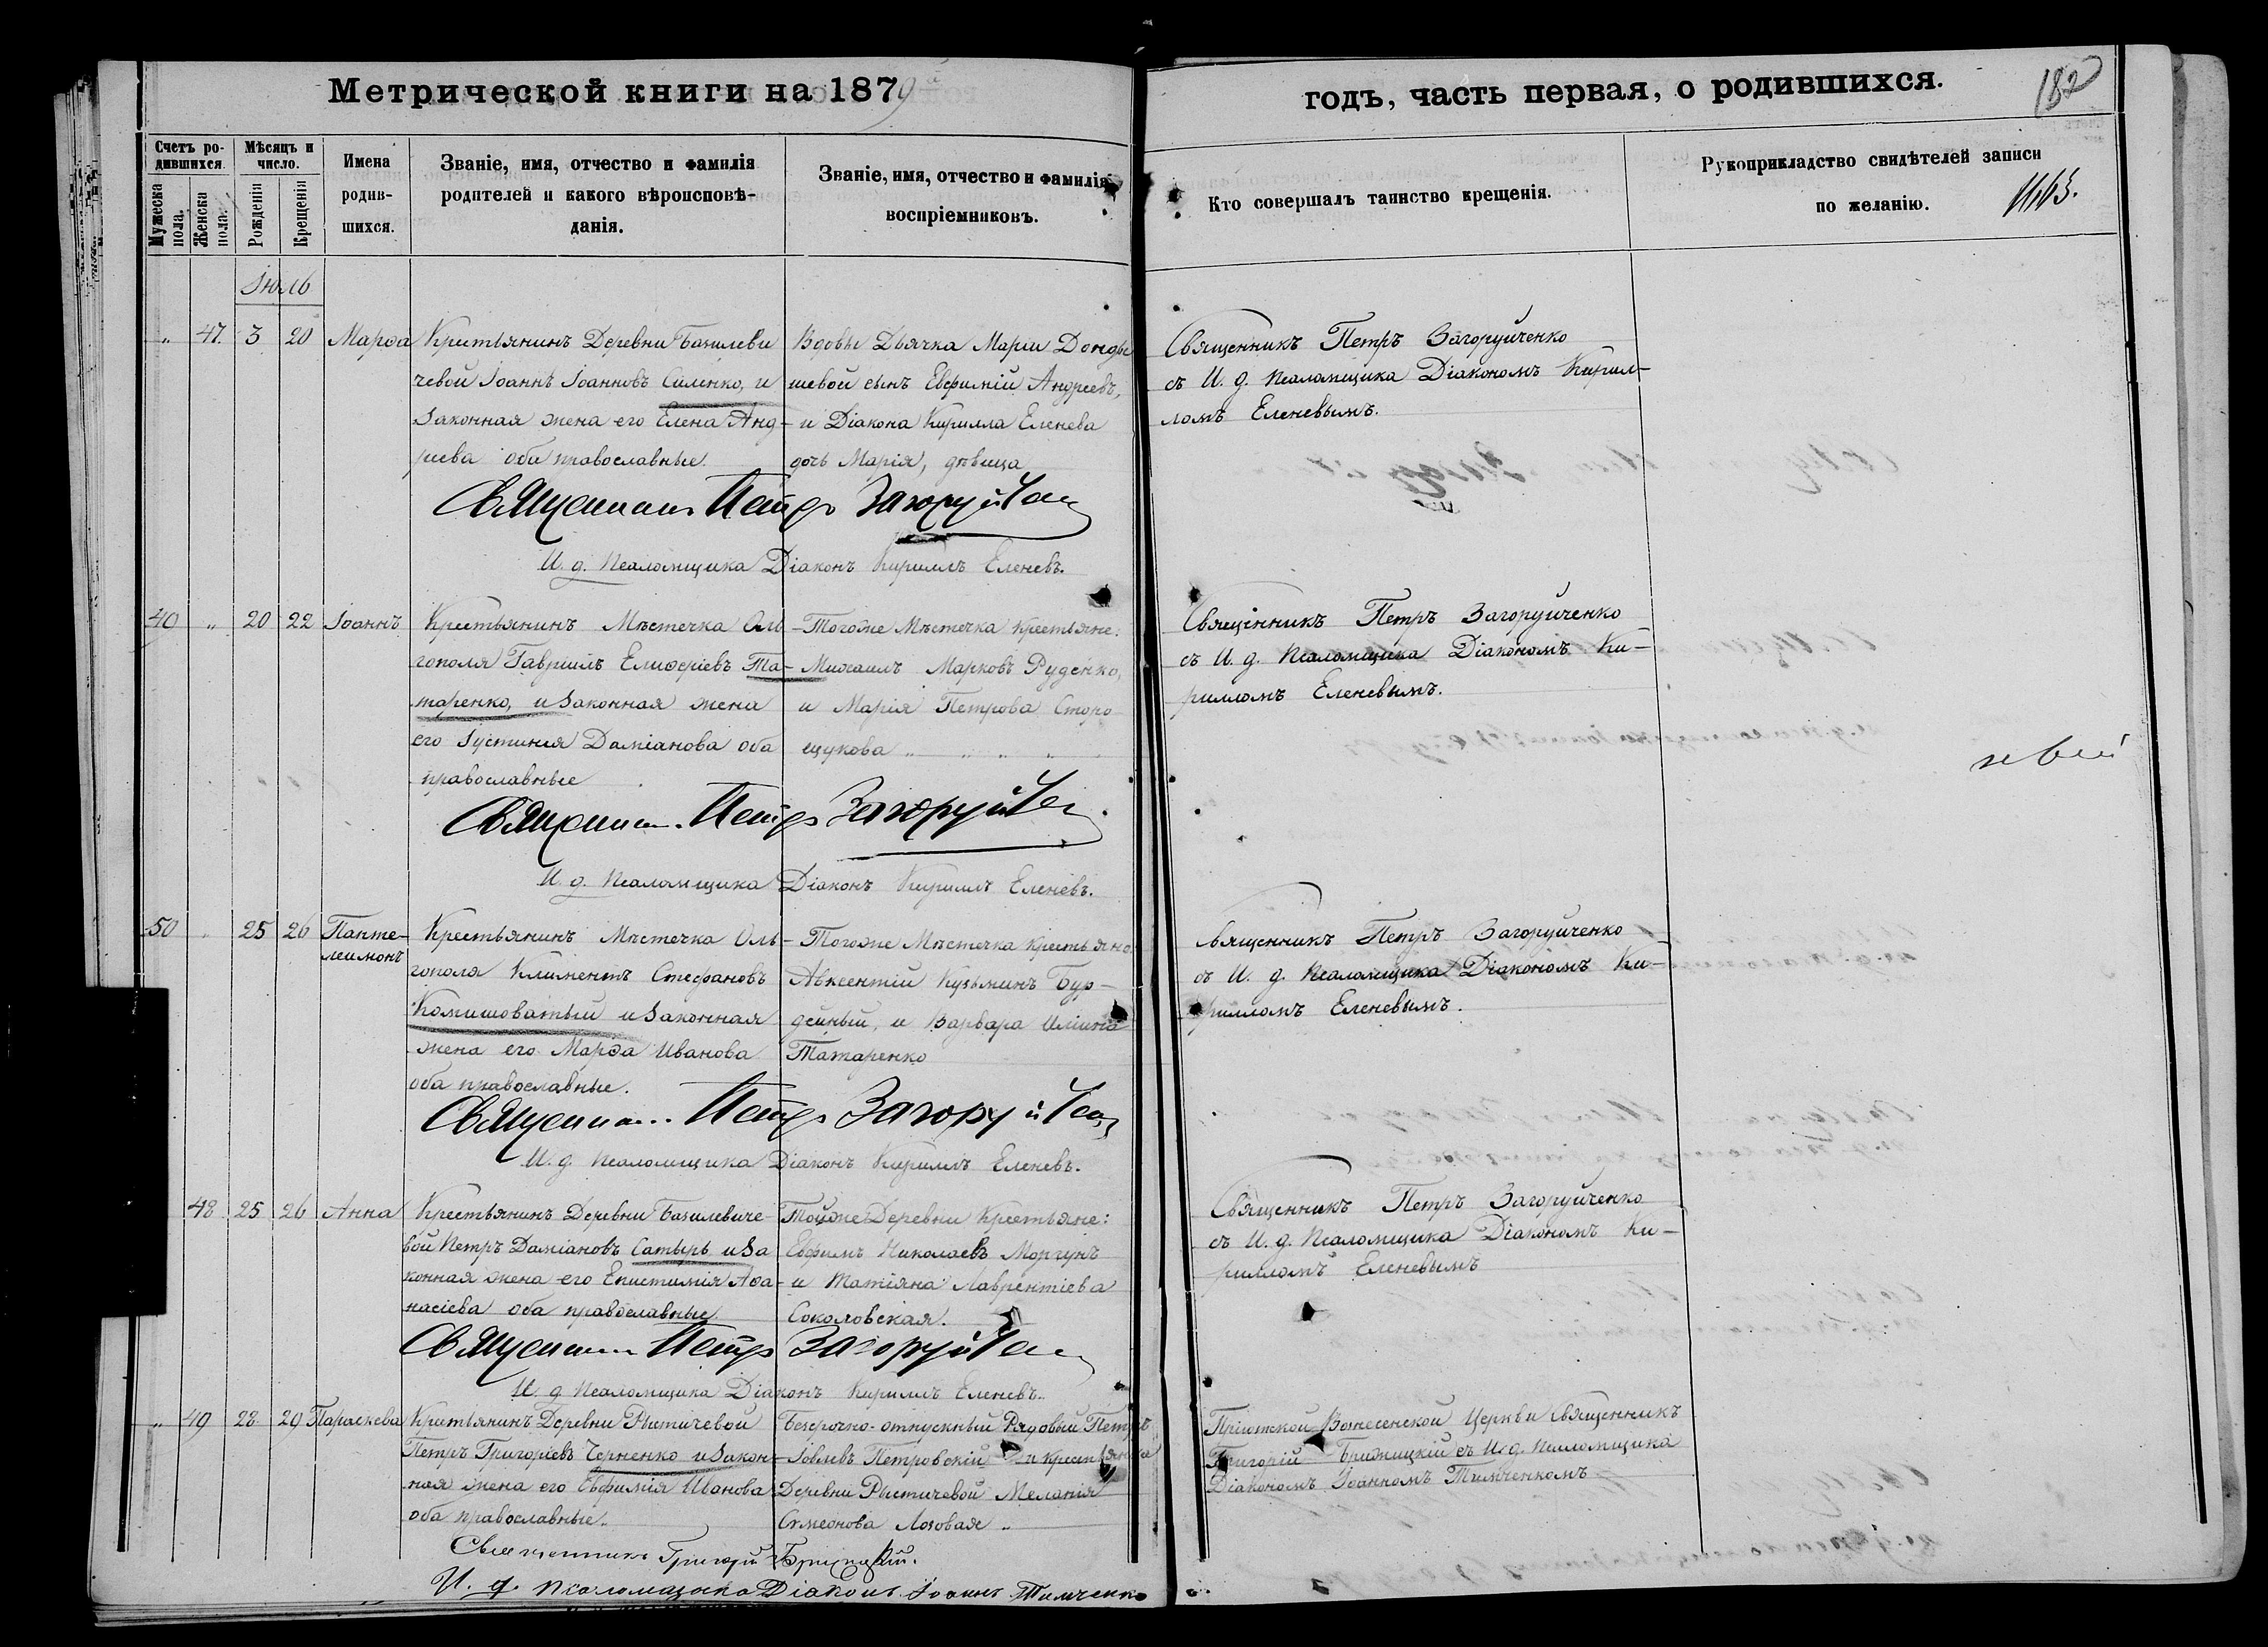 Метрической книги на 1879
годъ, часть первая, о родившихся.
182
Счетъ ро-
дившихся.
Мужеска
пола.
Женска
пола.
Мѣсяцъ и
число.
Рожденія
Крещенія
Имена
родив-
шихся.
Званіе, имя, отчество и фамилія
родителей и какого вѣроисповѣ-
данія.
Званіе, имя, отчество и фамилія
воспріемниковъ.
Кто совершалъ таинство крещенія.
Рукоприкладство свидѣтелей записи
по желанію.
Іюль
„ 47. 3 20 Марѳа
Крестьянинъ Деревни Базилеви
чевой Іоаннъ Іоанновъ Силенко, и
законная жена его Елена Анд-
реева оба православные.
Вдовы Дьячка Маріи
шевой сынъ Евфимій Андреевъ,
и Діакона Кирилла Еленева
дочь Марія, дѣвица
Священникъ Петръ Загоруйченко
съ И. д. Псаломщика Діакономъ Кирил-
ломъ Еленевымъ.
Священникъ Петръ Загоруйченко
И. д. Псаломщика Діаконъ Кириллъ Еленевъ.
40 „ 20 22 Іоаннъ
Крестьянинъ Мѣстечка Оль-
гополя Гавріилъ Елиѳеріевъ Та-
таренко, и законная жена
его Іустинія Даміанова оба
православные
Тогоже Мѣстечка Крестьяне:
Михаилъ Марковъ Руденко,
и Марія Петрова Сторо
щукова „ „ „ „
Священникъ Петръ Загоруйченко
съ И. д. Псаломщика Діакономъ Ки-
рилломъ Еленевымъ.
Священникъ Петръ Загоруйченко
И. д. Псаломщика Діаконъ Кириллъ Еленевъ.
50 „ 25 26 Панте-
леимонъ
Крестьянинъ Мѣстечка Оль-
гополя Климентъ Стефановъ
Комишоватый и законная
жена его Марѳа Иванова
оба православные.
Тогоже Мѣстечка крестьяне
Авксентій Кузьминъ Бур-
дейный, и Варвара Иліина
Татаренко
Священникъ Петръ Загоруйченко
съ И. д. Псаломщика Діакономъ Ки-
рилломъ Еленевымъ.
Священникъ Петръ Загоруйченко
И. д. Псаломщика Діаконъ Кириллъ Еленевъ.
48 25 26 Анна
Крестьянинъ Деревни Базилевиче-
вой Петръ Даміановъ Сатырь и за
конная жена его Епистимія Аѳа-
насіева оба православные.
Тойже Деревни Крестьяне:
Евфимъ Николаевъ Моргунъ
и Татіяна Лаврентіева
Соколовская.
Священникъ Петръ Загоруйченко
съ И. д. Псаломщика Діакономъ Ки-
рилломъ Еленевымъ
Священникъ Петръ Загоруйченко
И. д. Псаломщика Діаконъ Кириллъ Еленевъ.
„ 49 28. 29 Параскева
Крестьянинъ Деревни Рытичевой
Петръ Григоріевъ Черненко и закон-
ная жена его Евфимія Иванова
оба православные.
Безсрочно-отпускный Рядовый Петръ
Іовлевъ Петровскій и крестьянка
Деревни Рытичевой Меланія
Сѵмеонова Лозовая „
Пріютской Вознесенской Церкви священникъ
Григорій Брижицкій съ И. д. Псаломщика
Діакономъ Іоанномъ Тимченкомъ
Священникъ Григорій Брижицкій.
И. д. псаломщика Діаконъ Іоаннъ Тимченко